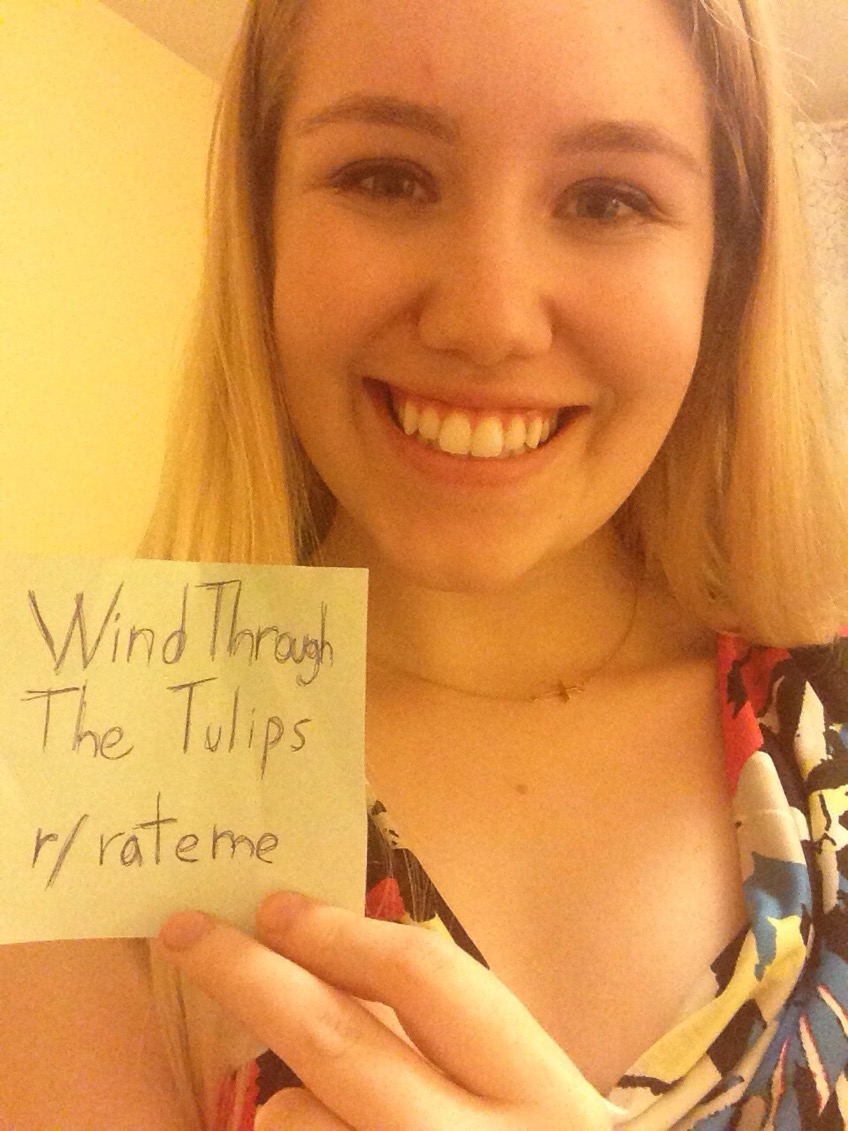 Wind Through
The Tulips
r/rateme